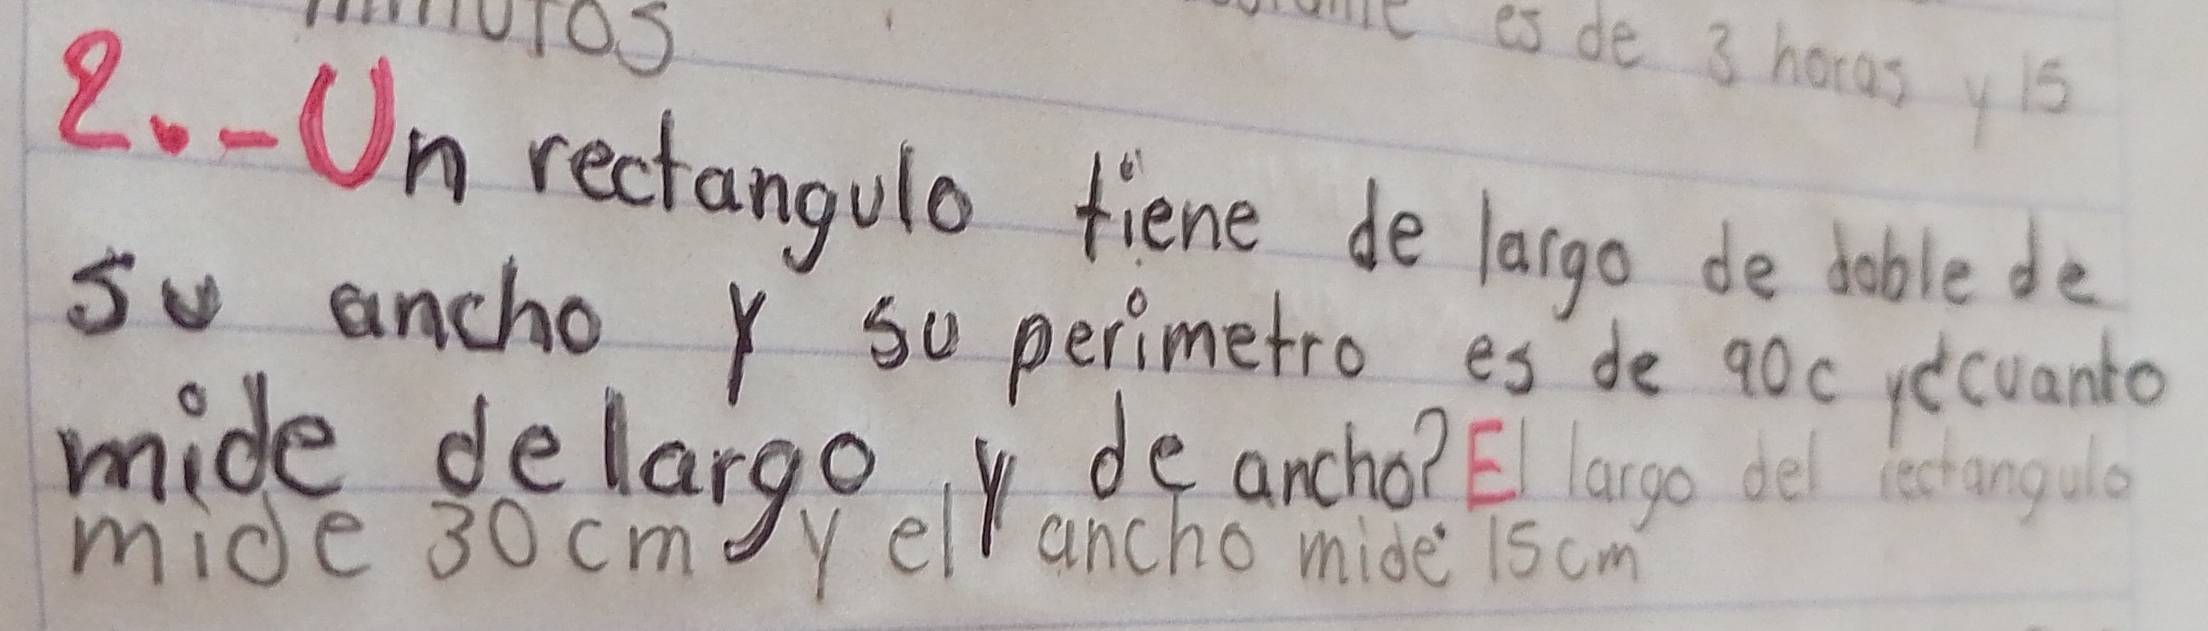 es de 3 horas y 15
2..-Un rectangulo tiene de largo de doble de
su ancho y su perimetro es de 90c y ¿cuanto
mide de largo, y de ancho? El largo del rectangulo
mide 30 cm y el ancho mide 15 cm